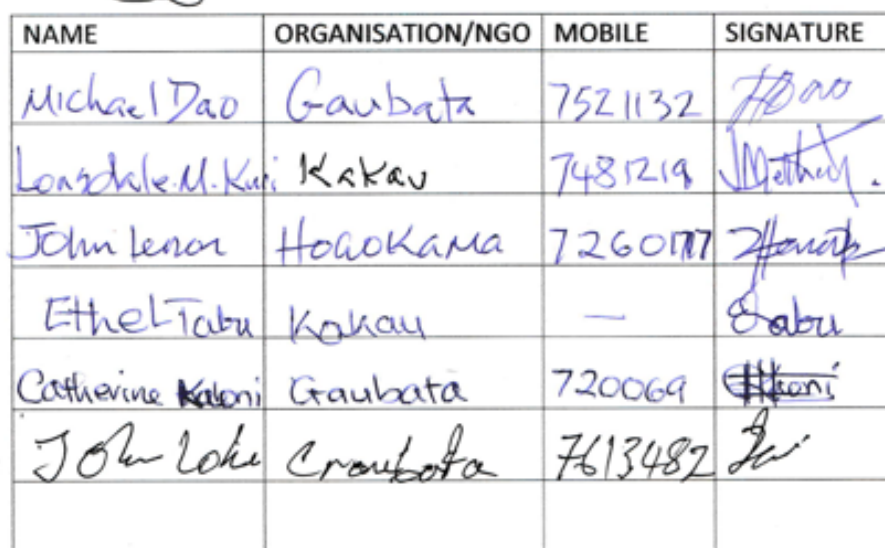 NAME ORGANISATION/NGO MOBILE SIGNATURE
Michael Dao Gaubata 7521132
Lonsdale.M. Kuri Kakau 7481219
John Lenon HOGOKAMA
Ethel Tabu Kakau — Sabu
Catherine Kaloni Gaubata 720069
John Loke Graubata 7613482